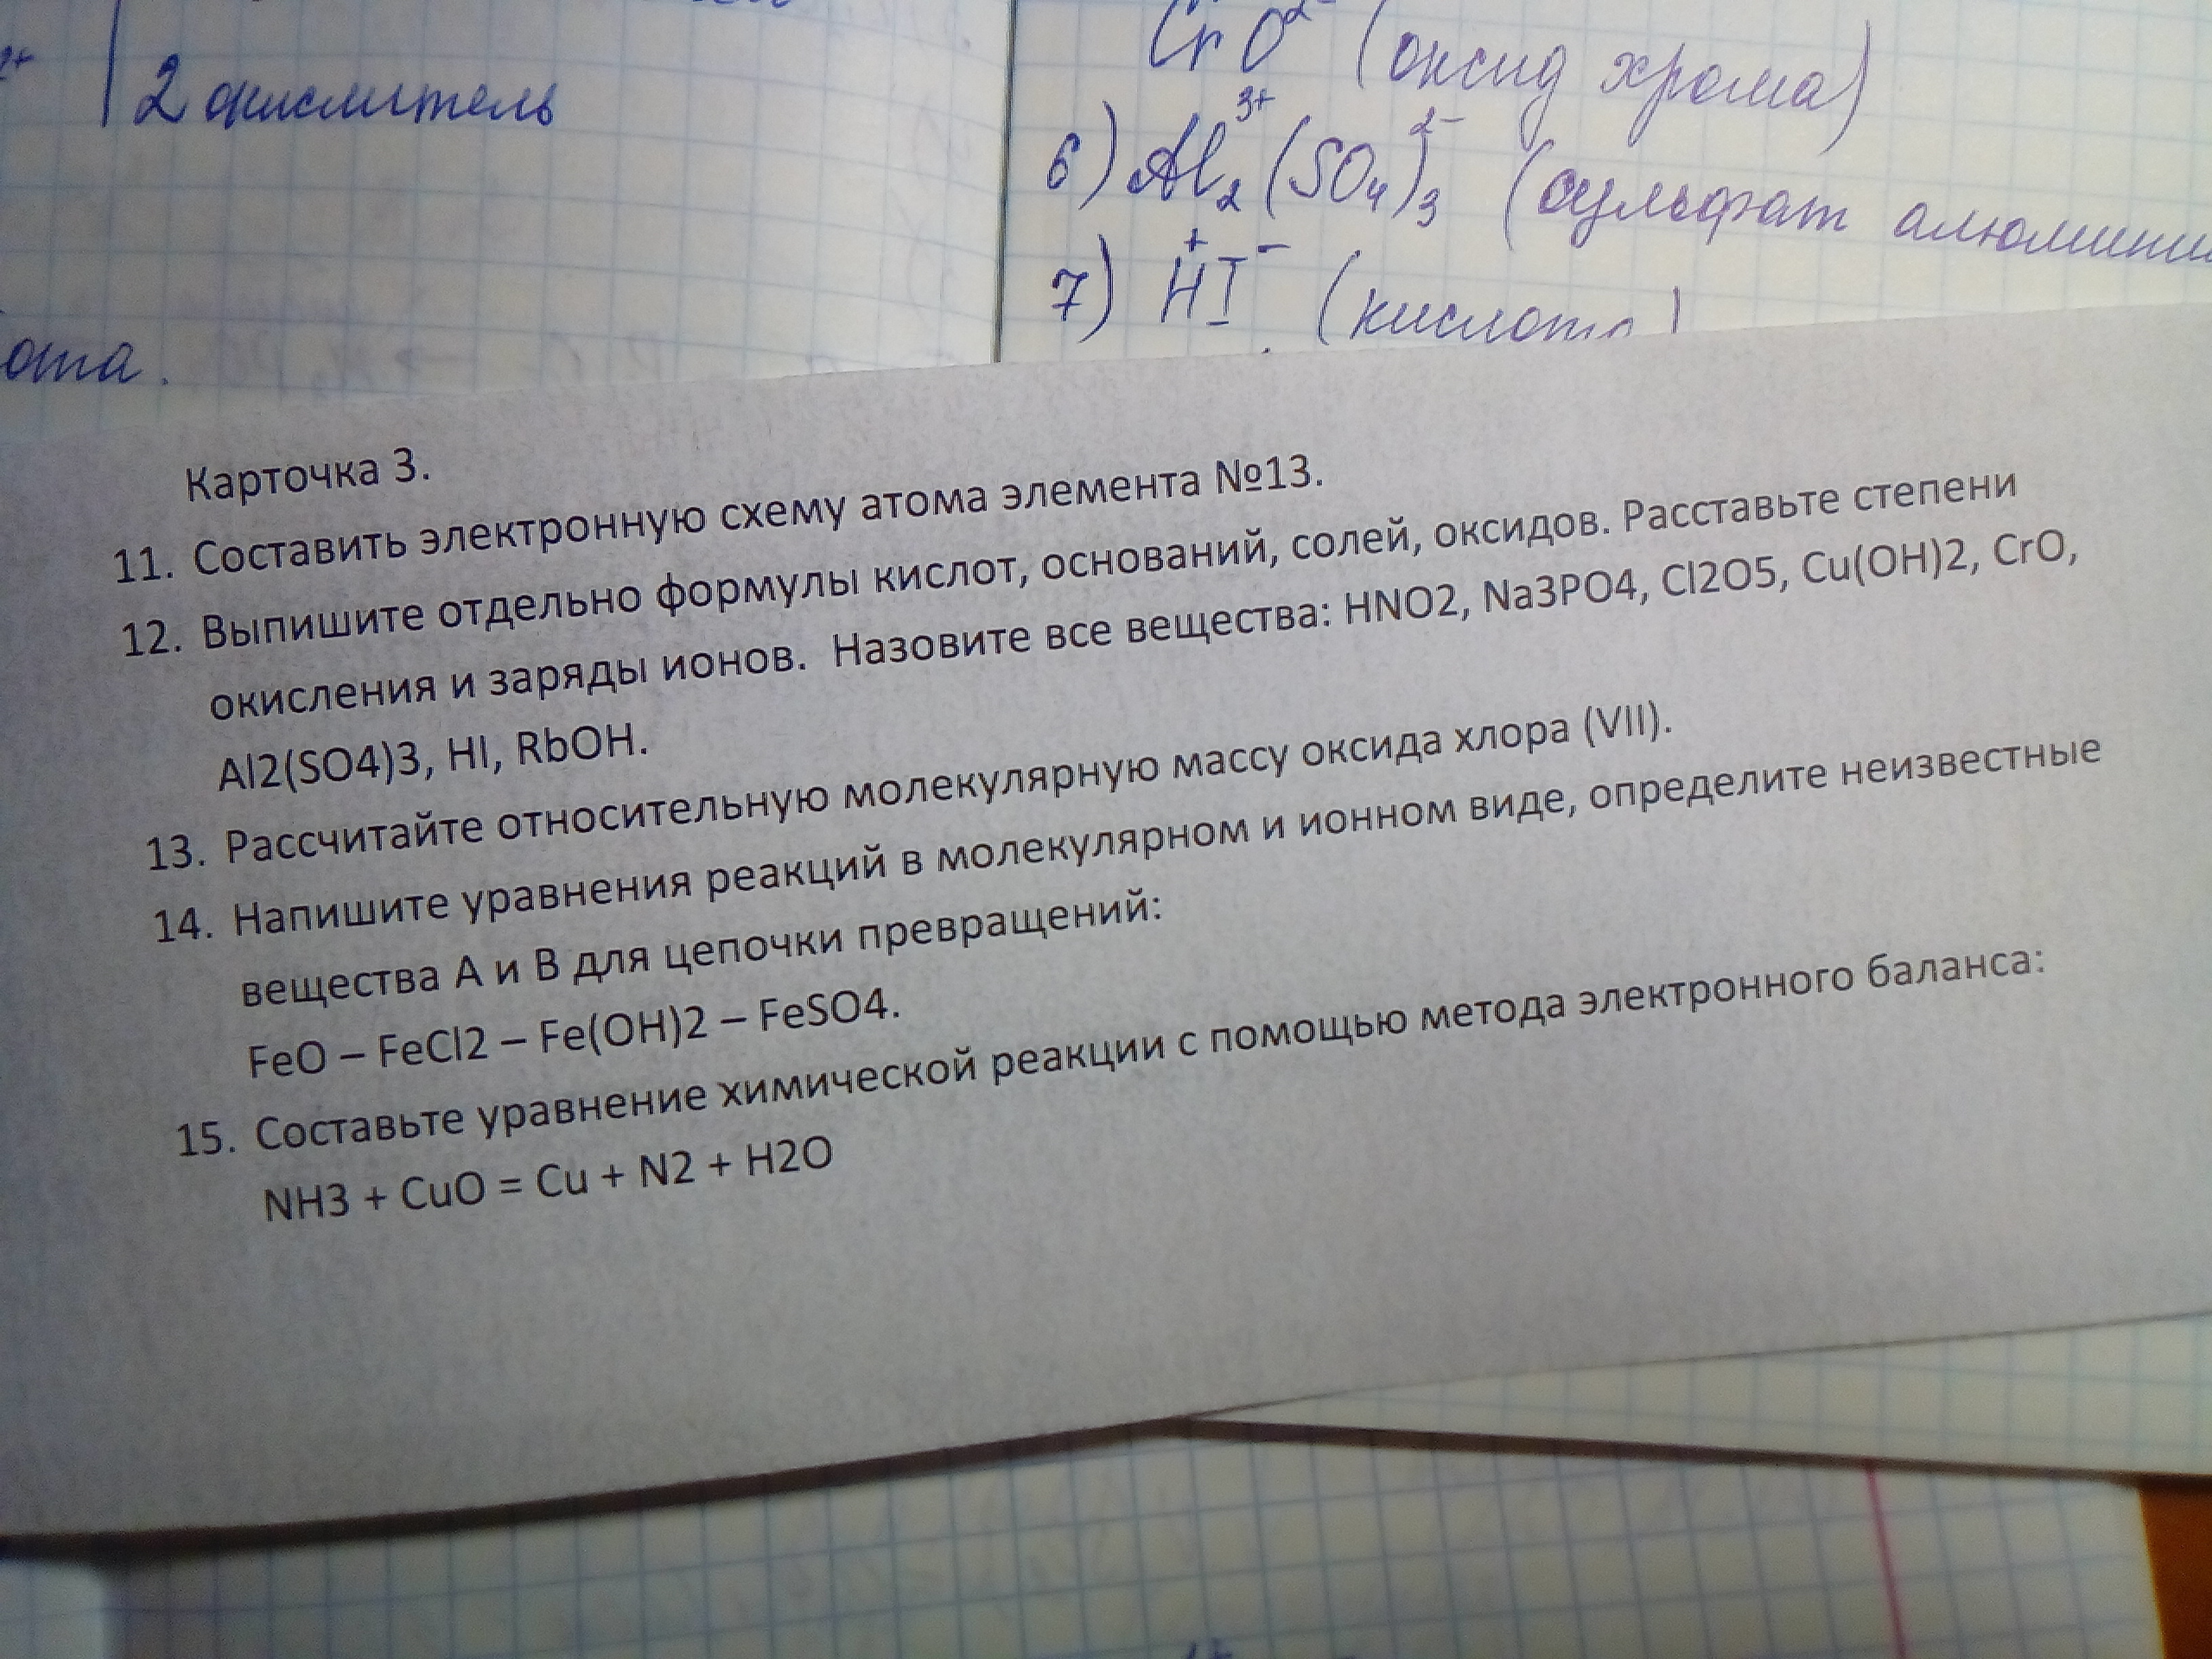 2+ | 2 окислитель
CrO 2- (оксид хрома)
6) Al₂³⁺(SO₄)₃²⁻ (сульфат алюмини
7) H⁺I⁻ (кислота)
ота.
Карточка 3.
11. Составить электронную схему атома элемента №13.
12. Выпишите отдельно формулы кислот, оснований, солей, оксидов. Расставьте степени
окисления и заряды ионов. Назовите все вещества: HNO2, Na3PO4, Cl2O5, Cu(OH)2, CrO,
Al2(SO4)3, HI, RbOH.
13. Рассчитайте относительную молекулярную массу оксида хлора (VII).
14. Напишите уравнения реакций в молекулярном и ионном виде, определите неизвестные
вещества А и В для цепочки превращений:
FeO – FeCl2 – Fe(OH)2 – FeSO4.
15. Составьте уравнение химической реакции с помощью метода электронного баланса:
NH3 + CuO = Cu + N2 + H2O